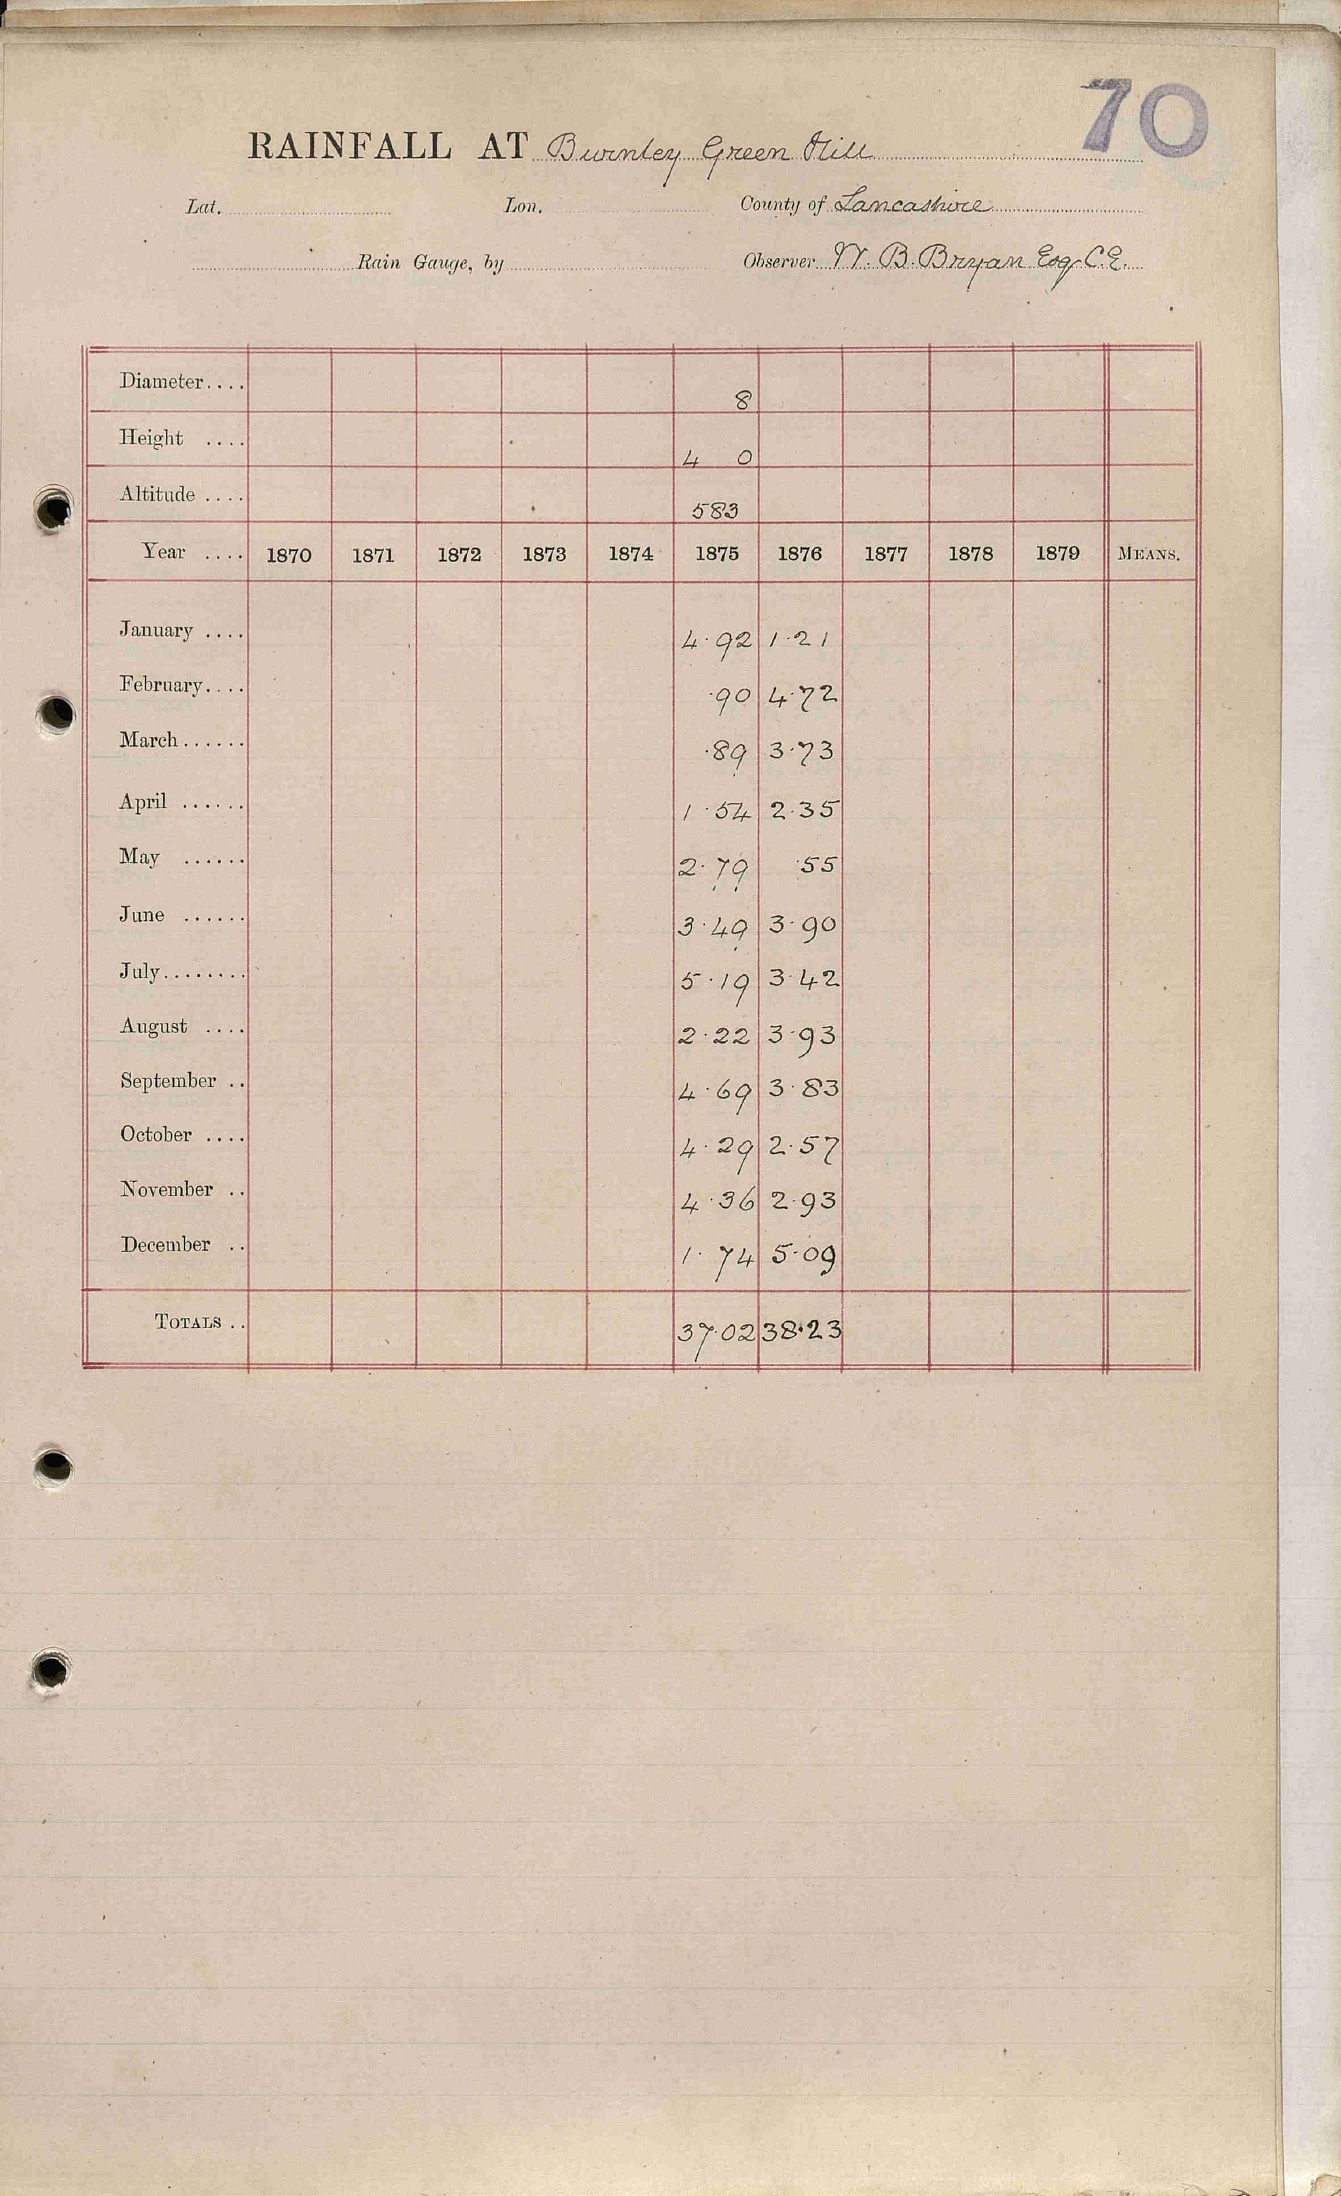 70
RAINFALL AT Burnley Green Hill
Lat. Lon. County of Lancashire
Rain Gauge, by Observer W. B. Bryan Esq C.E.
Diameter.... 8
Height .... 4 0
Altitude .... 583
Year .... 1870 1871 1872 1873 1874 1875 1876 1877 1878 1879 MEANS.
January .... 4.92 1.21
February.... .90 4.72
March...... .89 3.73
April ...... 1.54 2.35
May ...... 2.79 .55
June ...... 3.49 3.90
July........ 5.19 3.42
August .... 2.22 3.93
September .. 4.69 3.83
October .... 4.29 2.57
November .. 4.36 2.93
December .. 1.74 5.09
TOTALS .. 37.02 38.23